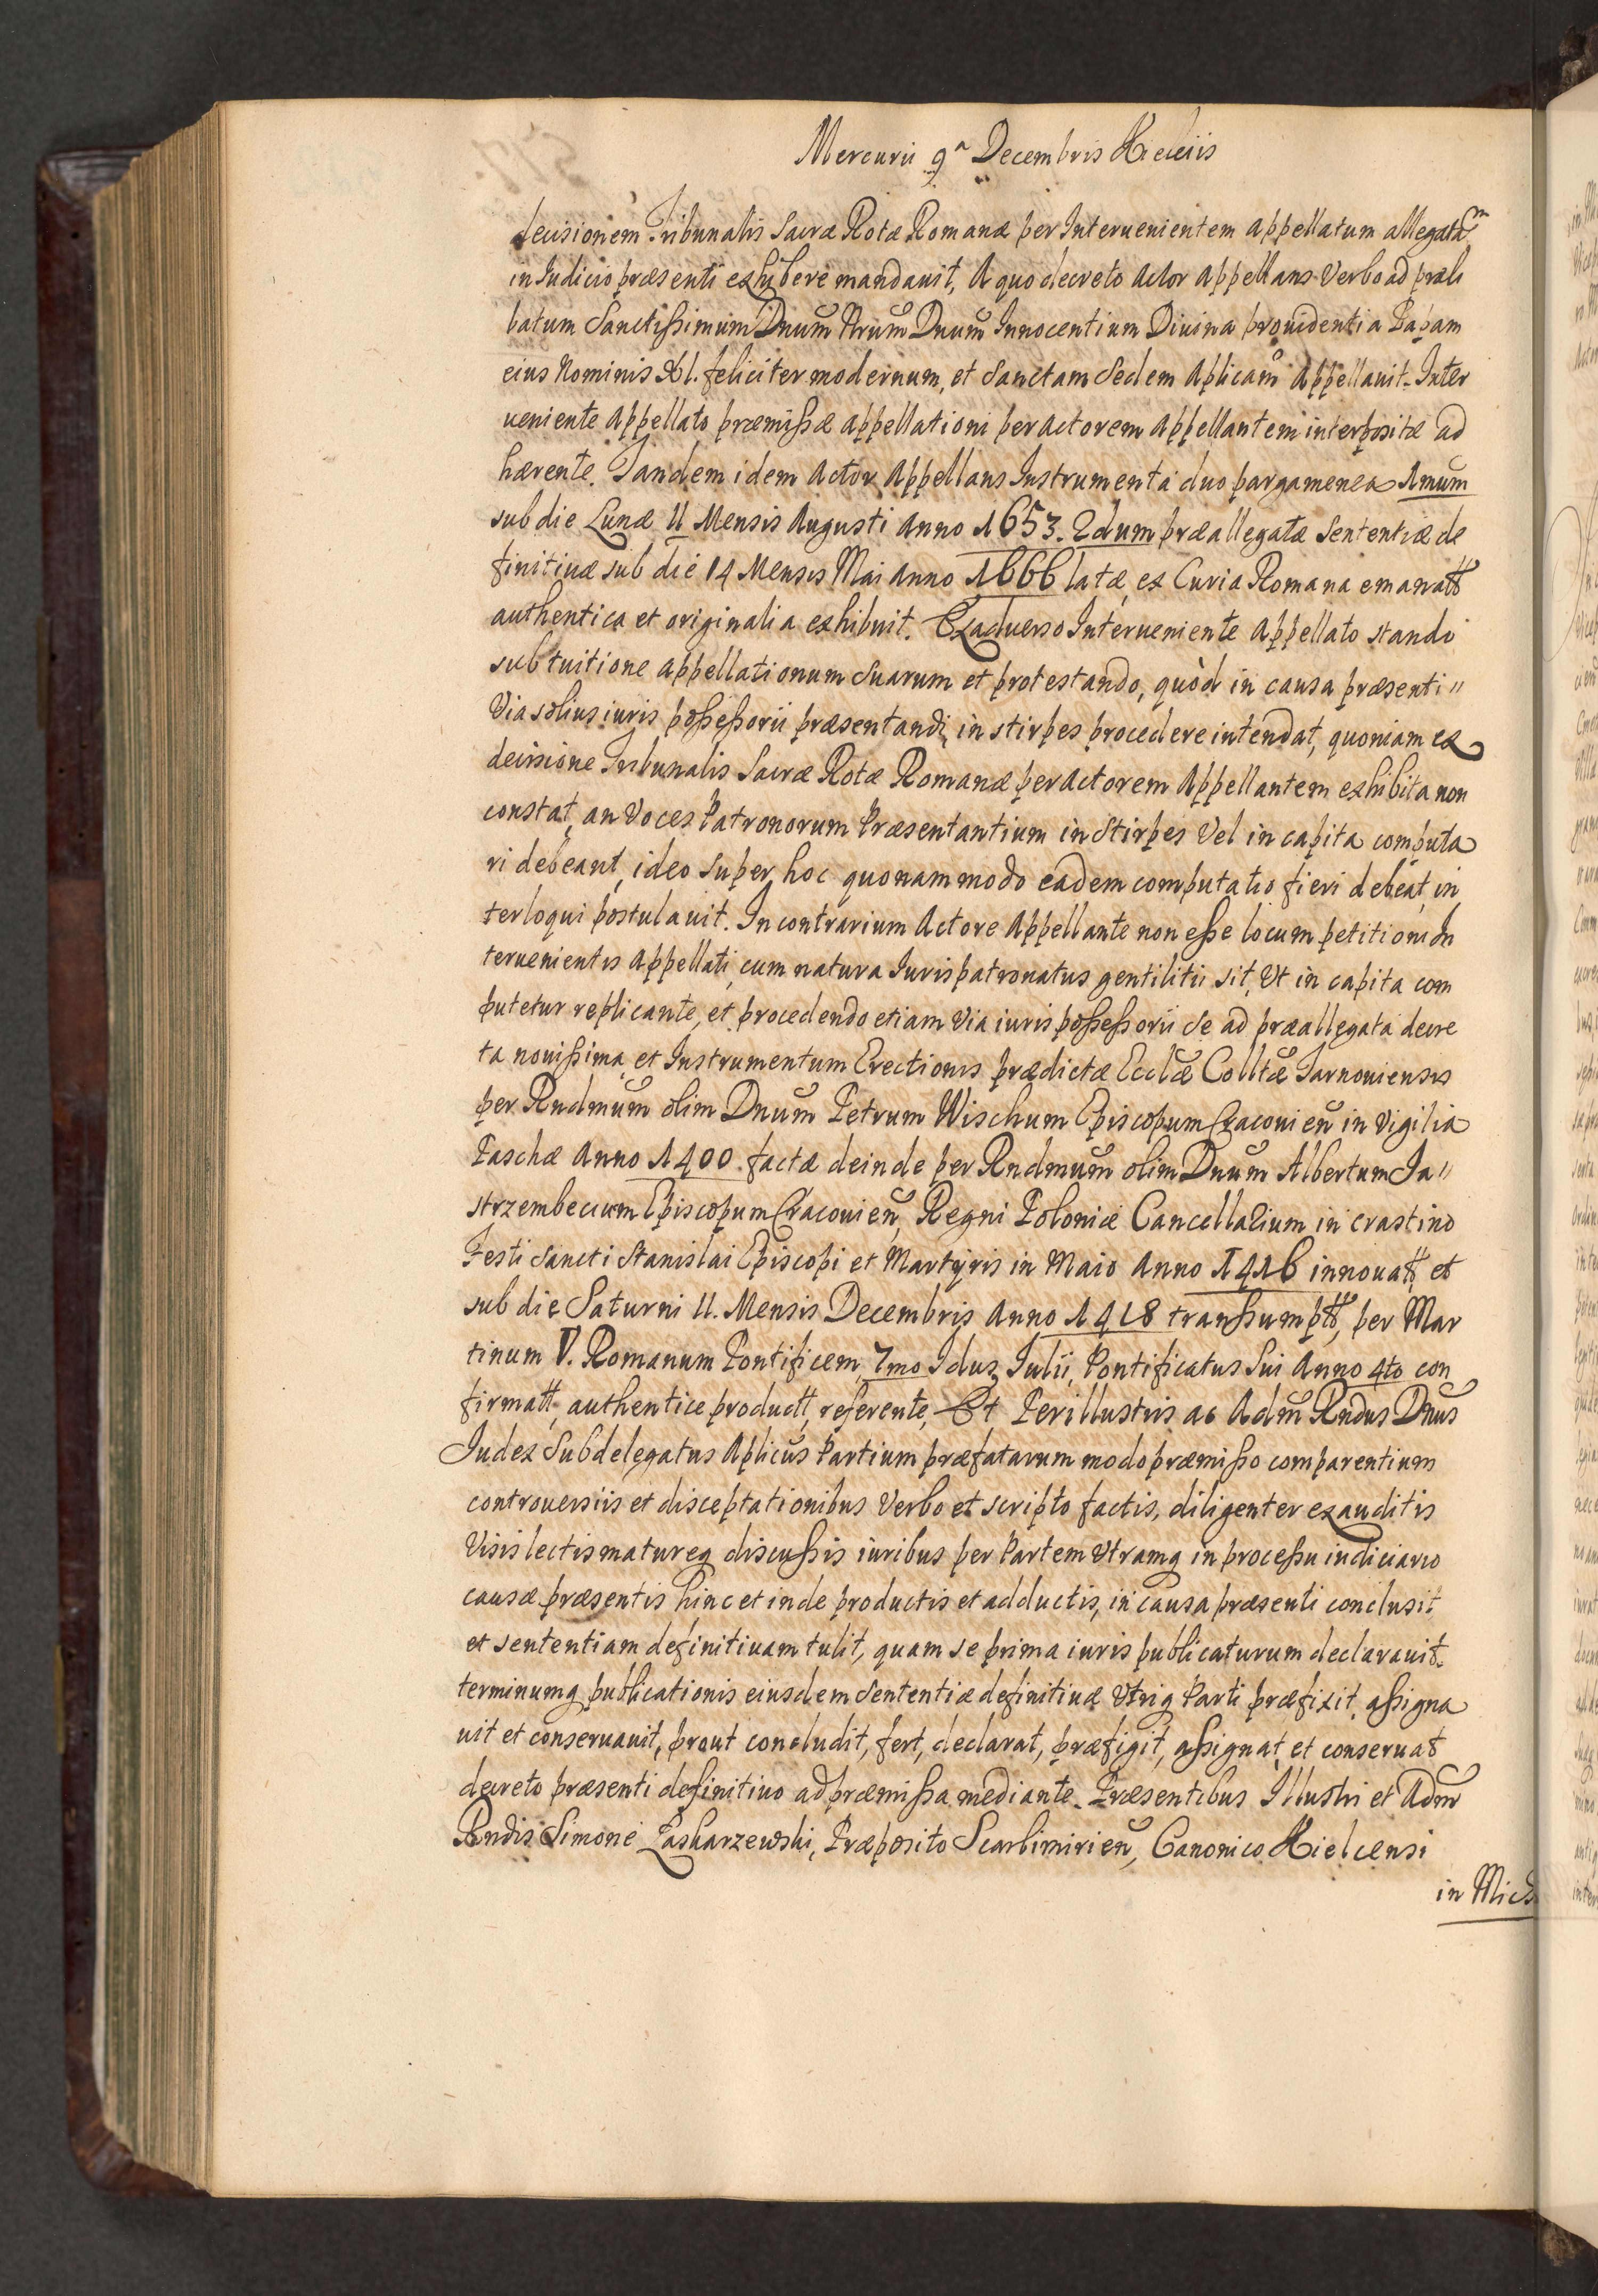 Mercurii 9ª Decembris Kielciis
decisionem Tribunalis Sacræ Rotæ Romanæ per Interuenientem appellatum allegatam
in Iudicio præsenti exhibere mandauit, A quo decreto Actor appellans Verbo ad præli
batum Sanctissimum Dnum Nrum Dnum Innocentium Diuina prouidentia Papam
eius Nominis XI. feliciter modernum, et Sanctam Sedem Aplicam Appellauit. Inter
ueniente Appellato præmissæ appellationi per actorem Appellantem interpositæ ad
hærente. Tandem idem Actor Appellans Instrumenta duo pargamenea 1mum
sub die Lunæ 11 Mensis Augusti Anno 1653. 2dum præallegatæ Sententiæ de
finitiuæ sub die 14 Mensis Mai Anno 1666 latæ, ex Curia Romana emanatt
authentica et originalia exhibuit. Ex aduerso Interueniente Appellato stando
sub tuitione appellationum Suarum et protestando, quòd in causa præsenti"
Via solius iuris possessorii præsentandi, in stirpes procedere intendat, quoniam ex
decisione Tribunalis Sacræ Rotæ Romanæ per Actorem Appellantem exhibita non
constat, an Voces Patronorum Præsentantium in Stirpes Vel in capita computa
ri debeant, ideo super hoc quonam modo eadem computatio fieri debeat, in
terloqui postulauit. In contrarium Actore Appellante non esse locum petitioni In
teruenientis Appellati, cum natura Iurispatronatus gentilitii sit, Vt in capita com
putetur replicante, et procedendo etiam Via iuris possessorii Se ad præallegata decre
ta nouissima, et Instrumentum Erectionis prædictæ Ecclæ Colltæ Tarnouiensis
per Rndmum olim Dnum Petrum Wischum Episcopum Cracouien in Vigilia
Paschæ Anno 1400. factæ deinde per Rndmum olim Dnum Albertum Ja"
strzembecium Episcopum Cracouien, Regni Poloniæ Cancellarium in crastino
Festi Sancti Stanislai Episcopi et Martyris in Maio Anno 1416 innouatt, et
sub die Saturni 11. Mensis Decembris Anno 1418 transsumptt, per Mar
tinum V. Romanum Pontificem, 7mo Idus Iulii, Pontificatus Sui Anno 4to con
firmatt, authentice productt, referente, Et Perillustris ac Adm Rndus Dnus
Iudex Subdelegatus Aplicus Partium præfatarum modo præmisso comparentium
controuersiis et disceptationibus Verbo et scripto factis, diligenter exauditis
Visis lectis matureq discussis iuribus per Partem Vtramq in processu iudiciario
causæ præsentis hinc et inde productis et adductis, in causa præsenti conclusit
et sententiam definitiuam tulit, quam se prima iuris publicaturum declarauit.
terminumq publicationis eiusdem Sententiæ definitiuæ Vtriq Parti præfixit, assigna
uit et conseruauit, prout concludit, fert, declarat, præfigit, assignat, et conseruat
decreto præsenti definitiuo ad præmissa mediante. Præsentibus Illustri et Adm
Rndis Simone Zasharzewski, Præposito Scarbimirien, Canonico Kielcensi
in Mich